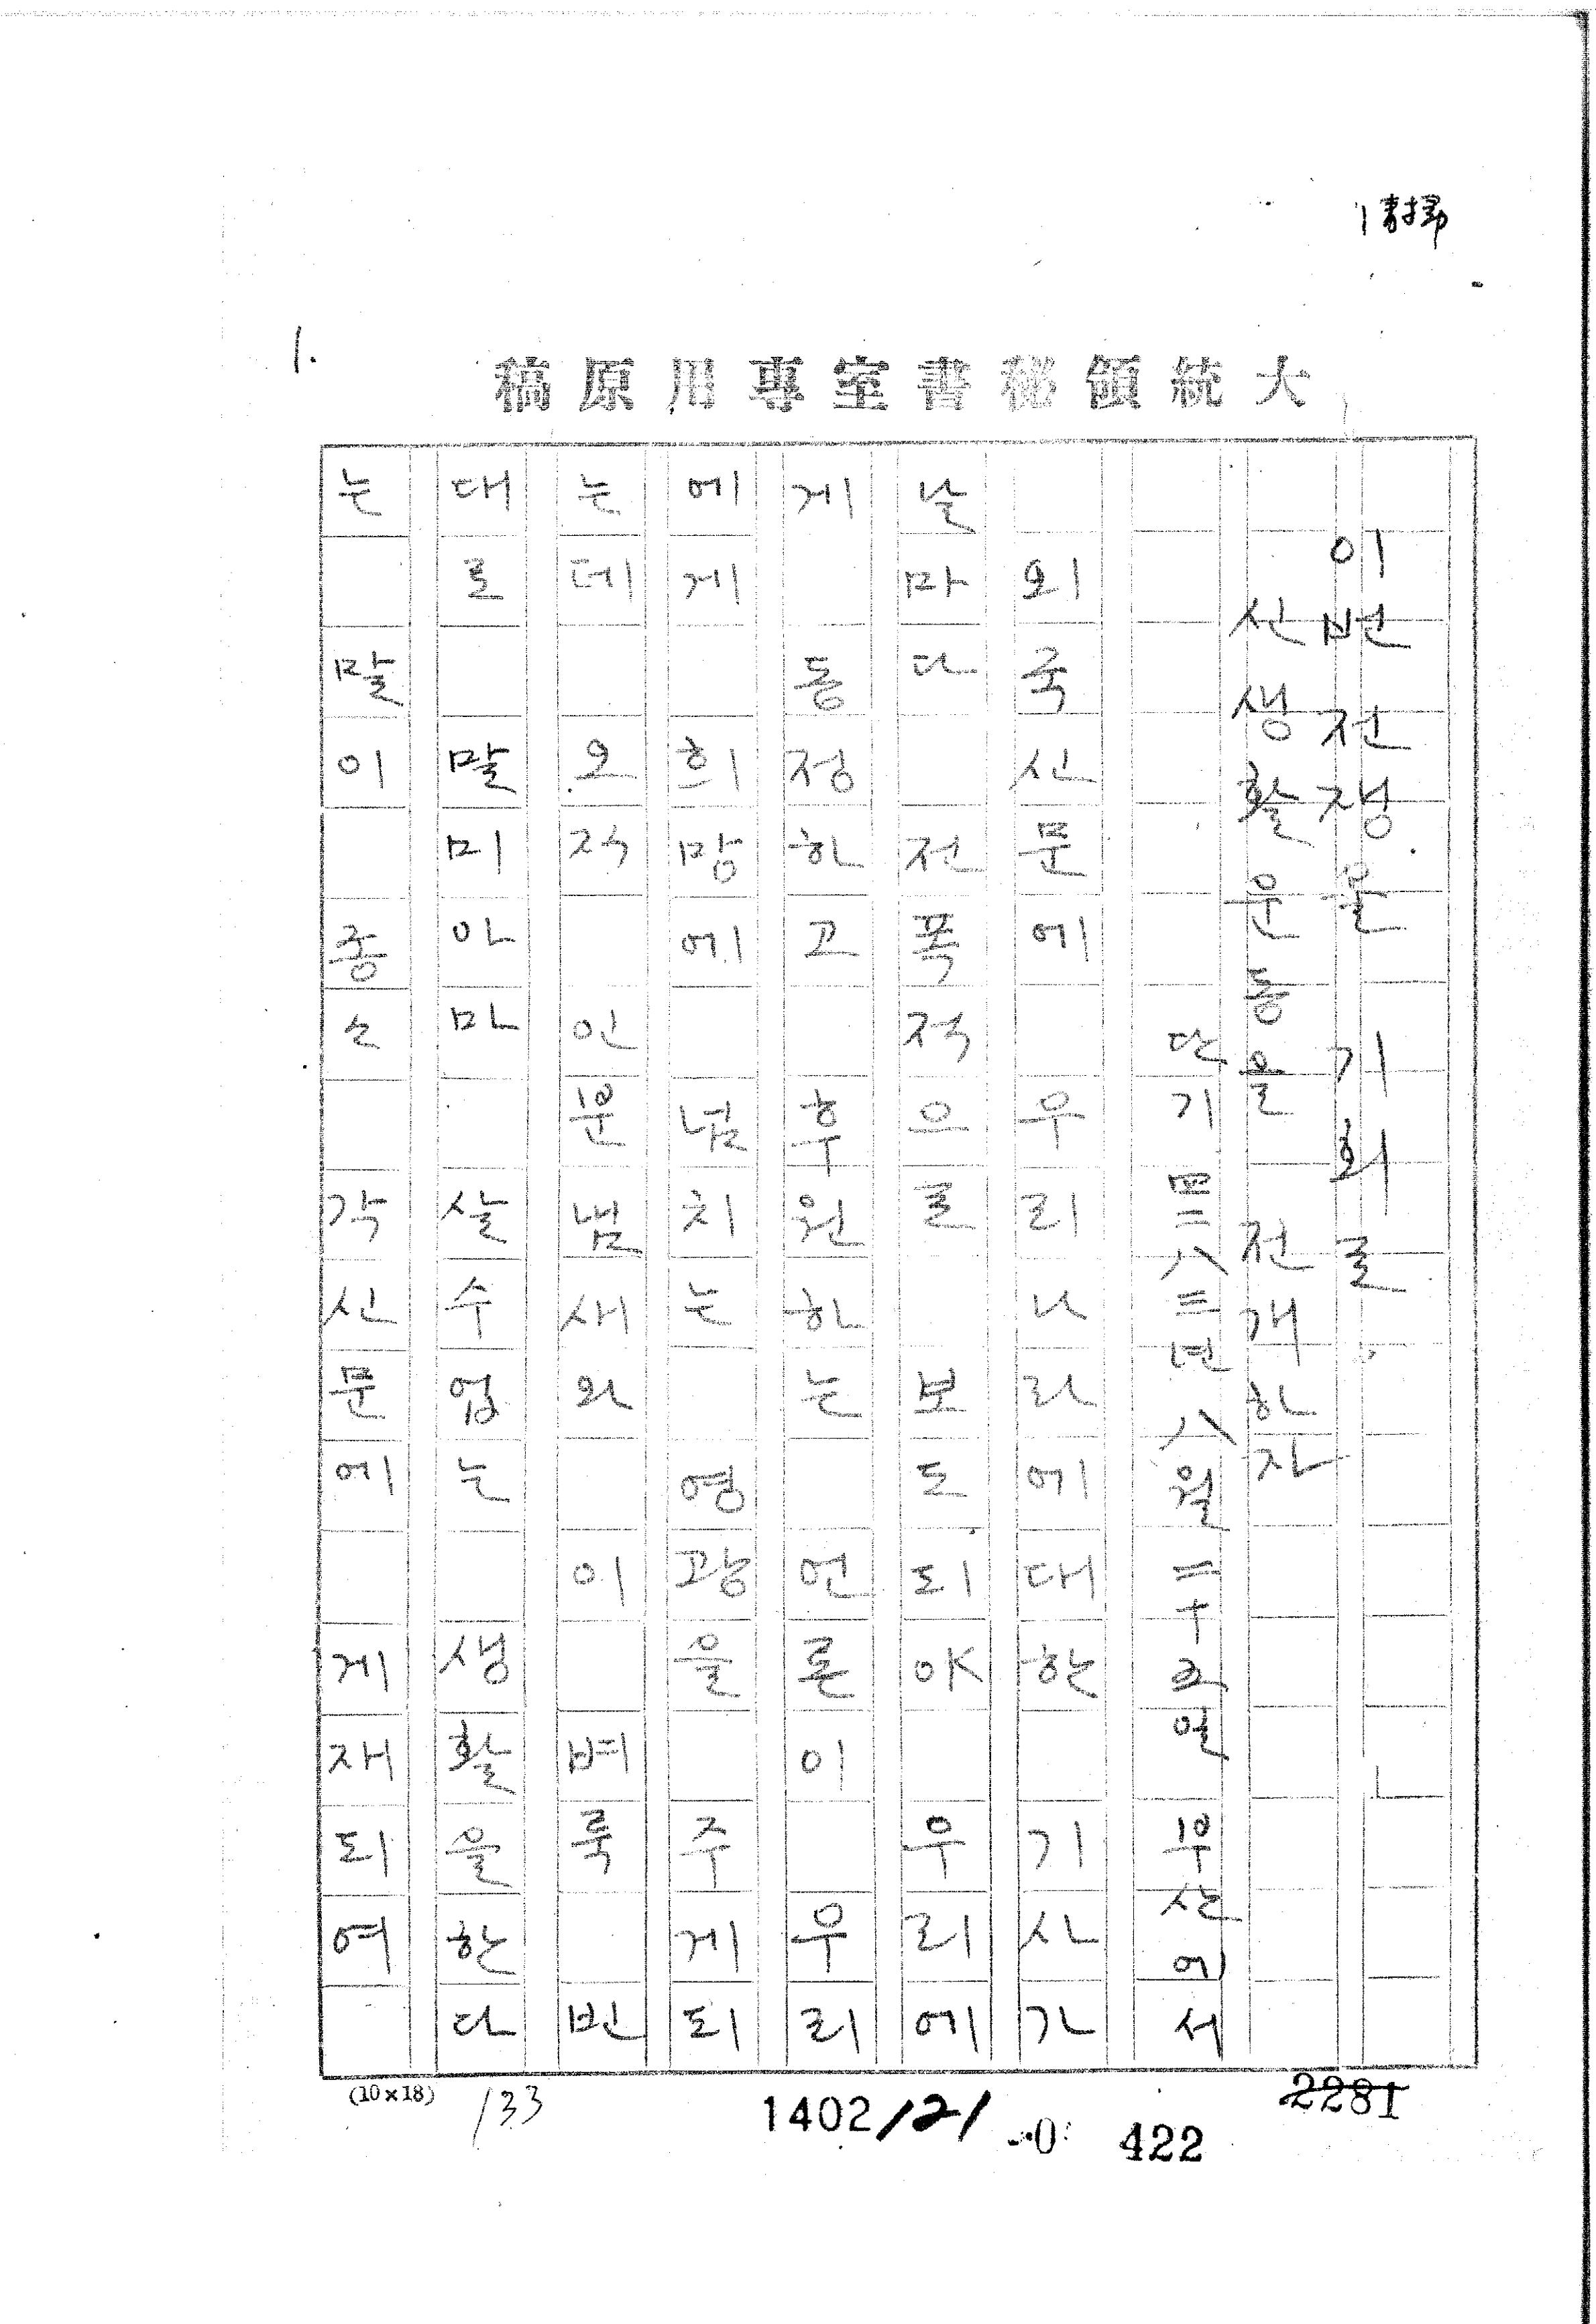 清掃
1.
大統領秘書室專用原稿
이번 전쟁을 기회로
신생활운동을 전개하자
단기 四二八三년 八월 二十五일 부산에서
외국신문에 우리나라에대한 기사가
날마다 전폭적으로 보도되야 우리에
게 동정하고 후원하는 언론이 우리
에게 희망에 넘치는 영광을 주게되
는데 오직 인분냄새와 이 벼룩 빈
대로 말미아마 살수업는 생활을한다
는 말이 종々 각신문에 게재되여
(10×18)
133
1402/21
422
2281